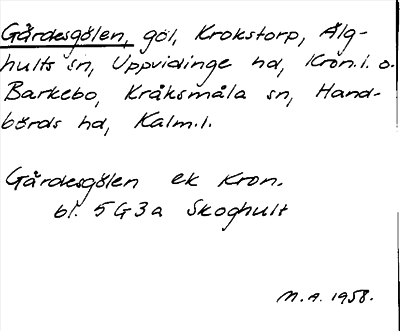 Gårdesgölen, göl, Krokstorp, Älg-
hults sn, Uppvidinge hd, Kron.l. o.
Barkebo, Kråksmåla sn, Hand-
börds hd, Kalm.l.
Gårdesgölen ek Kron.
bl. 5G3a Skoghult
M.A. 1958.